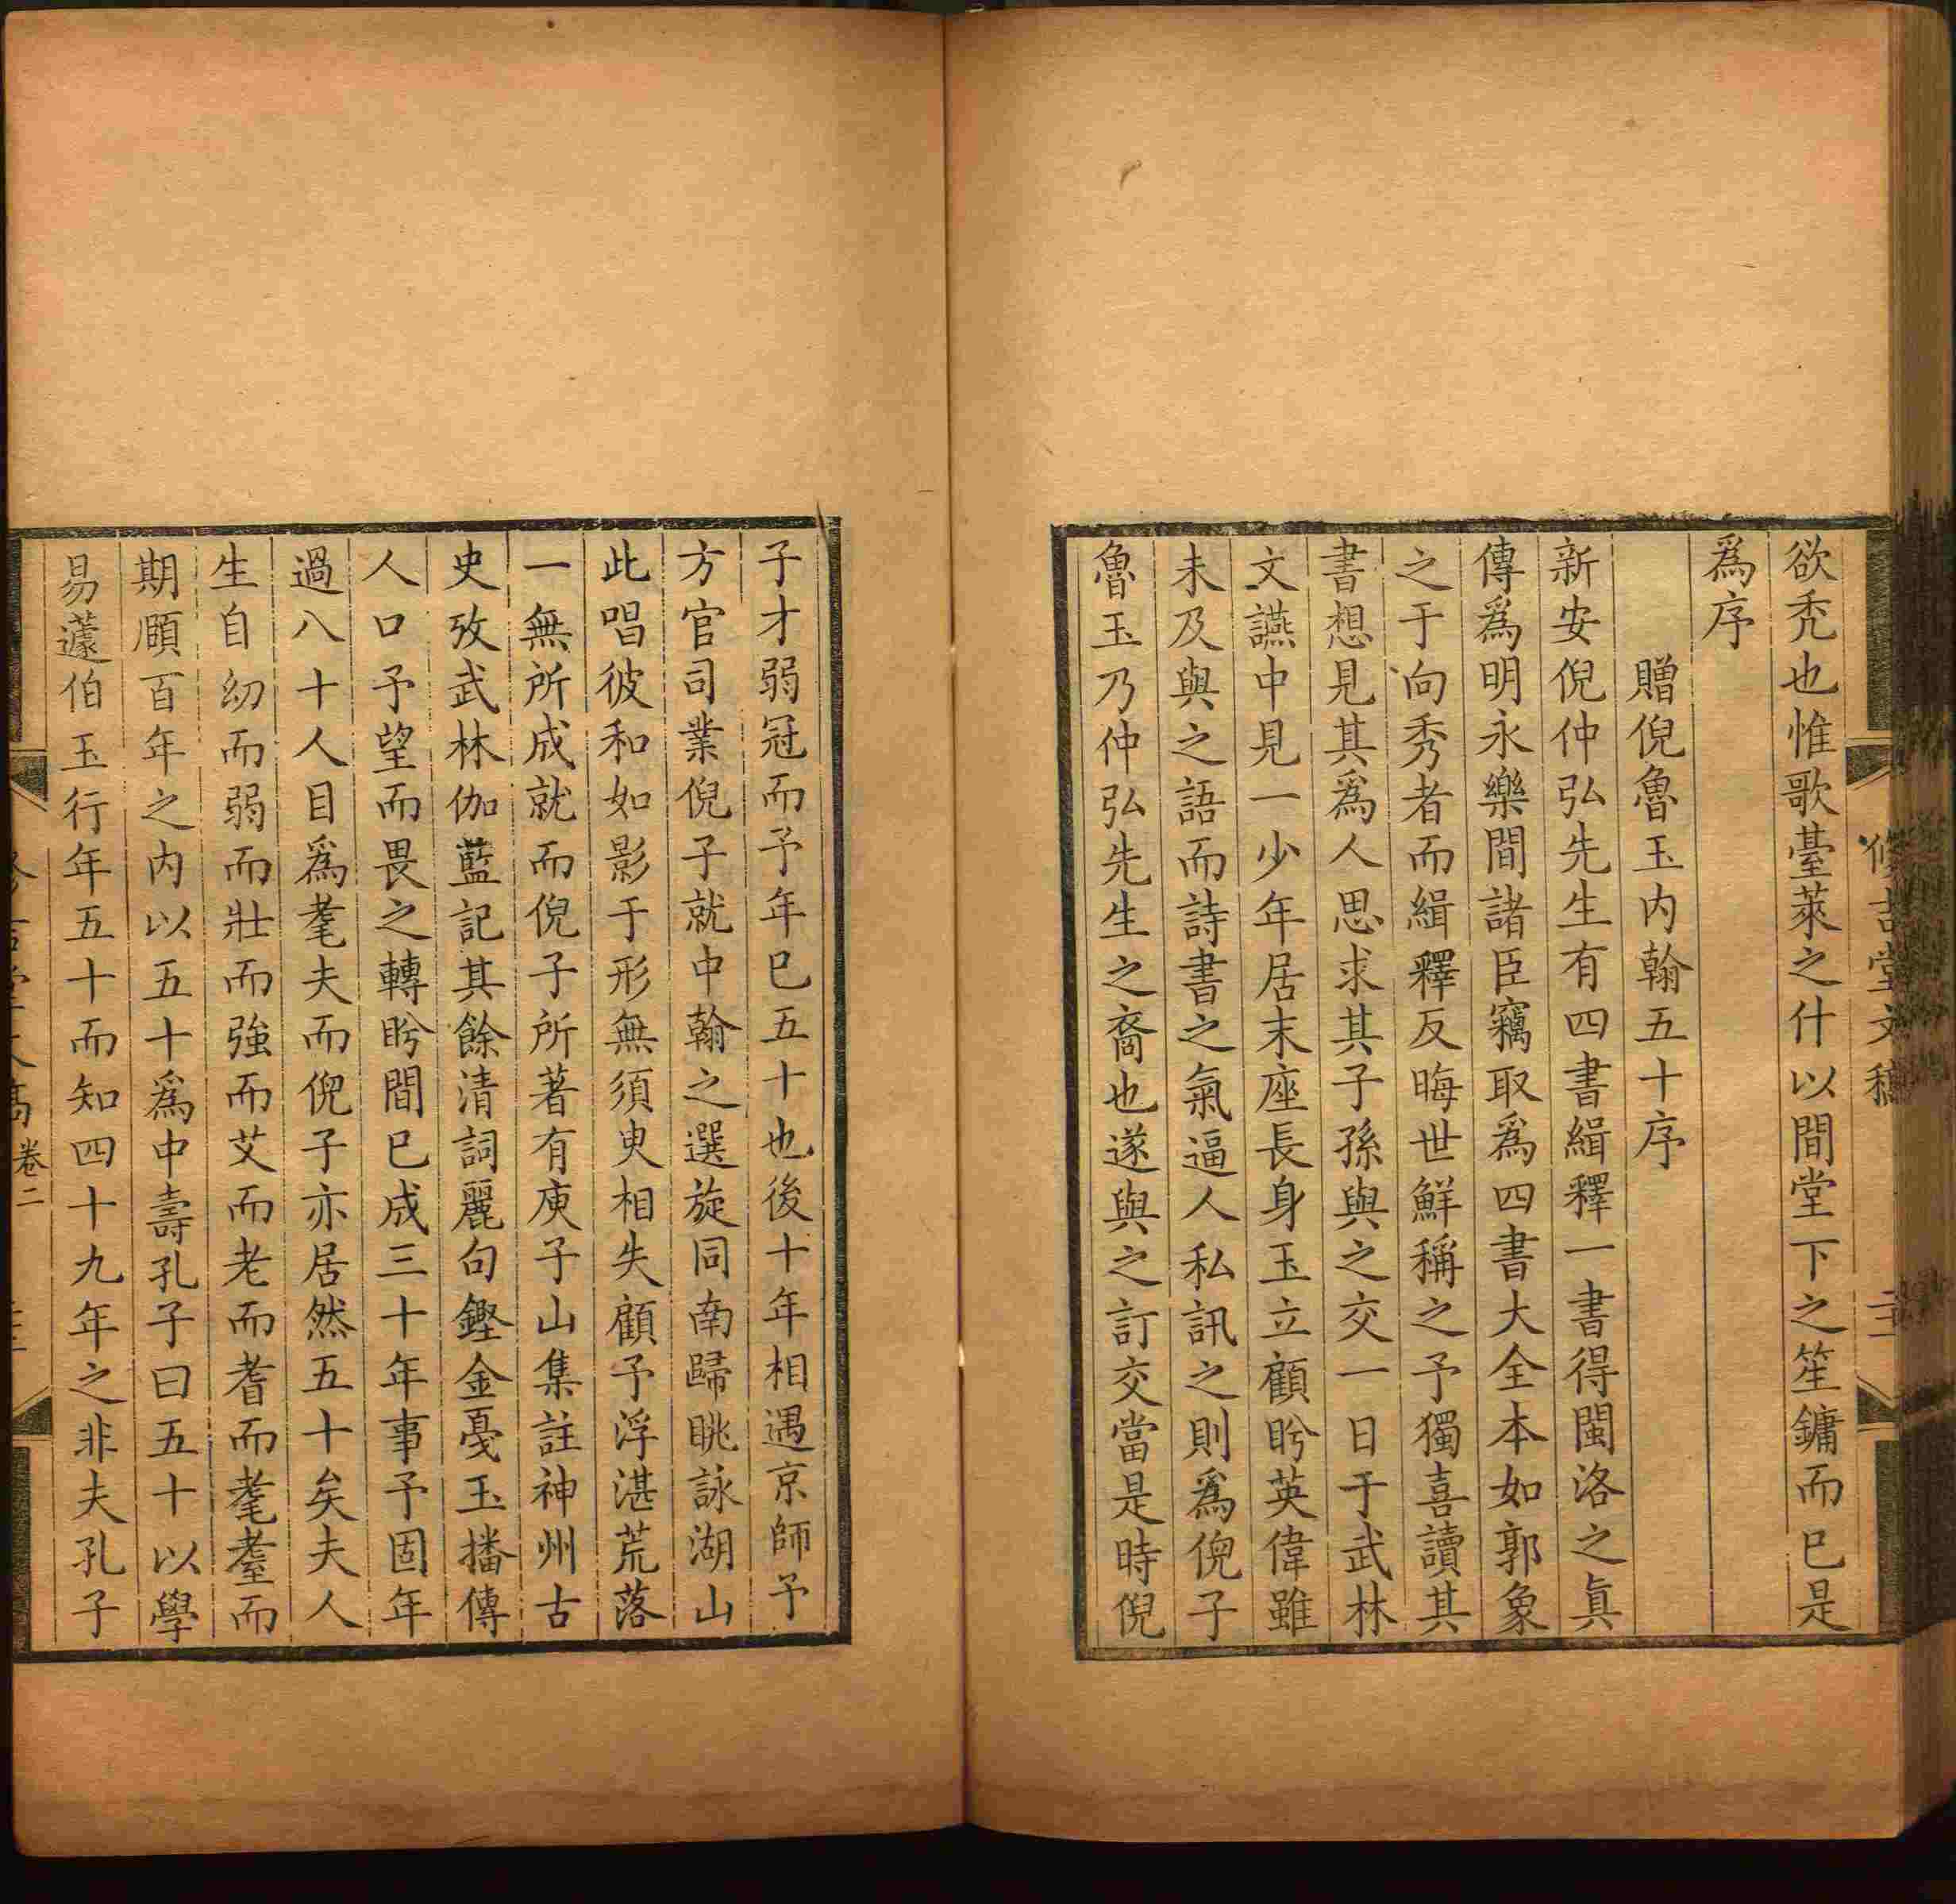 欲禿也惟歌臺萊之什以間堂下之笙鏞而已是
爲序
贈倪魯玉内翰五十序
新安倪仲弘先生有四書緝釋一書得閩洛之眞
傳爲明永樂間諸臣竊取爲四書大全本如郭象
之于向秀者而緝釋反晦世鮮稱之予獨喜讀其
書想見其爲人思求其子孫與之交一日于武林
文讌中見一少年居末座長身玉立顧盻英偉雖
未及與之語而詩書之氣逼人私訊之則爲倪子
魯玉乃仲弘先生之裔也遂與之訂交當是時倪
修吉堂文稿
子才弱冠而予年已五十也後十年相遇京師予
方官司業倪子就中翰之選旋同南歸眺詠湖山
此唱彼和如影于形無須臾相失顧予浮湛荒落
一無所成就而倪子所著有庾子山集註神州古
史攷武林伽藍記其餘清詞麗句鏗金戞玉播傳
人口予望而畏之轉盻間已成三十年事予固年
過八十人目爲耄夫而倪子亦居然五十矣夫人
生自幼而弱而壯而強而艾而老而耆而耄耋而
期頤百年之内以五十爲中壽孔子曰五十以學
易蘧伯玉行年五十而知四十九年之非夫孔子
卷二